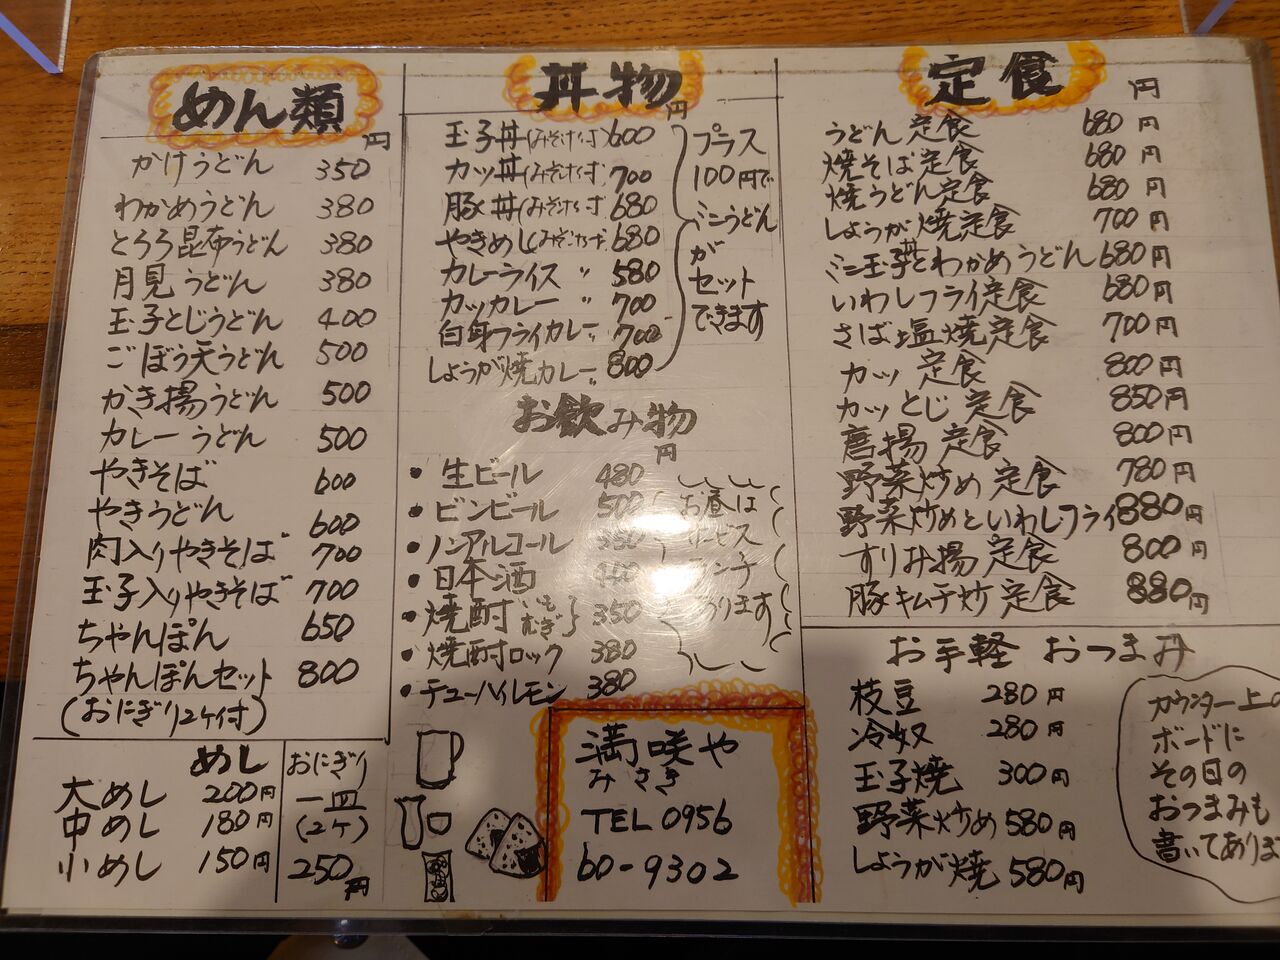 めん類
円
かけうどん 350
わかめうどん 380
とろろ昆布うどん 380
月見うどん 380
玉子とじうどん 400
ごぼう天うどん 500
かき揚うどん 500
カレーうどん 500
やきそば 600
やきうどん 600
肉入りやきそば 700
玉子入りやきそば 700
ちゃんぽん 650
ちゃんぽんセット 800
(おにぎり2ケ付)
めし
大めし 200円
中めし 180円
小めし 150円
おにぎり
一皿
(2ケ)
250円
丼物
円
玉子丼(みそ汁付) 600
カツ丼(みそ汁付) 700
豚丼(みそ汁付 680
やきめし(みそ汁付 680
カレーライス 〃 580
カツカレー 〃 700
白身フライカレー〃 700
しょうが焼カレー〃 800
プラス
100円で
ミニうどん
が
セット
できます
お飲み物
円
生ビール 480
ビンビール 500
ノンアルコール
日本酒
焼酎 いも むぎ 350
焼酎ロック 380
チューハイレモン 380
お昼は
サービス
ランチ
あります
満咲や
みさき
TEL 0956
60-9302
定食
円
うどん定食 680円
焼そば定食 680円
焼うどん定食 680円
しょうが焼定食 700円
ミニ玉子丼とわかめうどん 680円
いわしフライ定食 680円
さば塩焼定食 700円
カツ定食 800円
カツとじ定食 850円
唐揚定食 800円
野菜炒め定食 780円
野菜炒めといわしフライ 880円
すりみ揚定食 800円
豚キムチ炒定食 880円
お手軽 おつまみ
枝豆 280円
冷奴 280円
玉子焼 300円
野菜炒め 580円
しょうが焼 580円
カウンター上の
ボードに
その日の
おつまみも
書いてありま